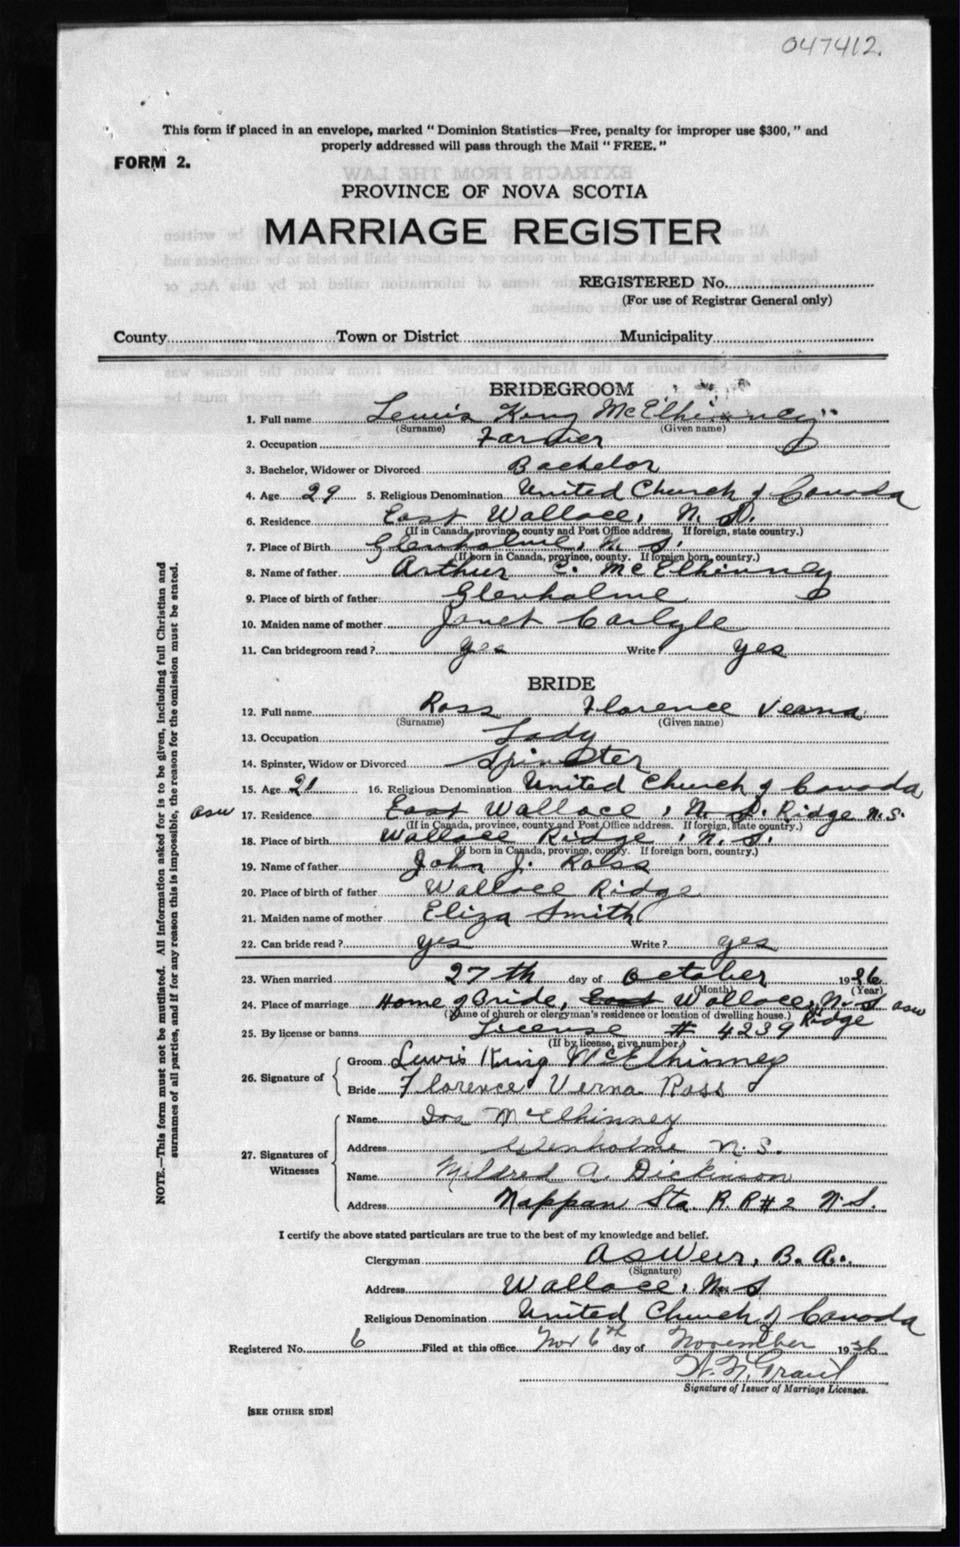 047412.
This form if placed in an envelope, marked "Dominion Statistics—Free, penalty for improper use $300," and
properly addressed will pass through the Mail "FREE."
FORM 2.
PROVINCE OF NOVA SCOTIA
MARRIAGE REGISTER
REGISTERED No.
(For use of Registrar General only)
County Town or District Municipality
BRIDEGROOM
1. Full name Lewis King McElhinney
(Surname) (Given name)
2. Occupation Farmer
3. Bachelor, Widower or Divorced Bachelor
4. Age 29 5. Religious Denomination United Church of Canada
6. Residence East Wallace, N. S.
(If in Canada, province, county and Post Office address. If foreign, state country.)
7. Place of Birth Glenholme, N. S.
(If born in Canada, province, county. If foreign born, country.)
8. Name of father Arthur C. McElhinney
9. Place of birth of father Glenholme
10. Maiden name of mother Janet Carlyle
11. Can bridegroom read? Yes Write? Yes
BRIDE
12. Full name Ross Florence Verna
(Surname) (Given name)
13. Occupation Lady
14. Spinster, Widow or Divorced Spinster
15. Age 21 16. Religious Denomination United Church of Canada
asw 17. Residence East Wallace, N. S. Ridge N.S.
(If in Canada, province, county and Post Office address. If foreign, state country.)
18. Place of birth Wallace Ridge, N. S.
(If born in Canada, province, county. If foreign born, country.)
19. Name of father John J. Ross
20. Place of birth of father Wallace Ridge
21. Maiden name of mother Eliza Smith
22. Can bride read? Yes Write? Yes
23. When married 27th day of October 1926
(Month) (Year)
24. Place of marriage Home of Bride, East Wallace, N. S asw
(Name of church or clergyman's residence or location of dwelling house.) Ridge
25. By license or banns License # 4239
(If by license, give number.)
26. Signature of Groom Lewis King McElhinney
Bride Florence Verna Ross
27. Signatures of Witnesses Name Ira McElhinney
Address Glenholme N.S.
Name Mildred A. Dickinson
Address Nappan Sta. R.R#2 N.S.
I certify the above stated particulars are true to the best of my knowledge and belief.
Clergyman A S Weir, B. A.
(Signature)
Address Wallace, N. S
Religious Denomination United Church of Canada
Registered No. 6 Filed at this office Nov 6th day of November 1926
Grant
Signature of Issuer of Marriage Licenses.
[SEE OTHER SIDE]
NOTE.—This form must not be mutilated. All information asked for is to be given, including full Christian and
surnames of all parties, and if for any reason this is impossible, the reason for the omission must be stated.